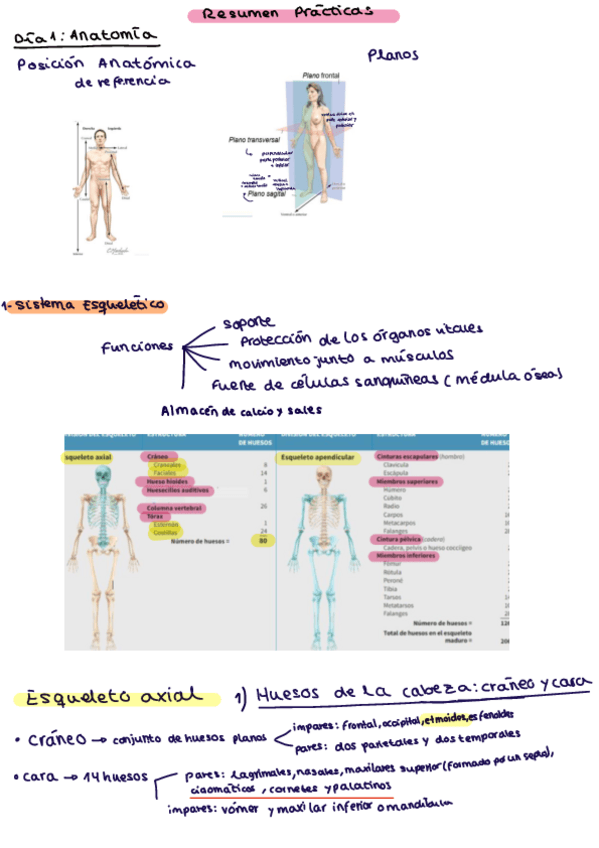 Resumen Prácticas
Día 1: Anatomía
Posición Anatómica
de referencia
Planos
Plano frontal
Plano transversal
Plano sagital
Derecho
Izquierdo
1- Sistema Esquelético
Funciones
soporte
Protección de los órganos vitales
movimiento junto a músculos
Fuente de células sanguíneas (médula ósea)
Almacén de calcio y sales
DIVISIÓN DEL ESQUELETO ESTRUCTURA NÚMERO DE HUESOS
squeleto axial
Cráneo
Craneales 8
Faciales 14
Hueso hioides 1
Huesecillos auditivos 6
Columna vertebral 26
Tórax
Esternón 1
Costillas 24
Número de huesos = 80
DIVISIÓN DEL ESQUELETO ESTRUCTURA
DE HUES
Esqueleto apendicular
Cinturas escapulares (hombro)
Clavícula
Escápula
Miembros superiores
Húmero
Cúbito
Radio
Carpos
Metacarpos
Falanges
Cintura pélvica (cadera)
Cadera, pelvis o hueso coccígeo
Miembros inferiores
Fémur
Rótula
Peroné
Tibia
Tarsos
Metatarsos
Falanges
Número de huesos = 126
Total de huesos en el esqueleto
maduro = 206
Esqueleto axial
1) Huesos de la cabeza: cráneo y cara
• cráneo → conjunto de huesos planos
impares: frontal, occipital, etmoides, esfenoides
pares: dos parietales y dos temporales
• cara → 14 huesos
pares: lagrimales, nasales, maxilares superior (formado por un septo),
ciaomáticos, cornetes y palatinos
impares: vómer y maxilar inferior o mandíbula